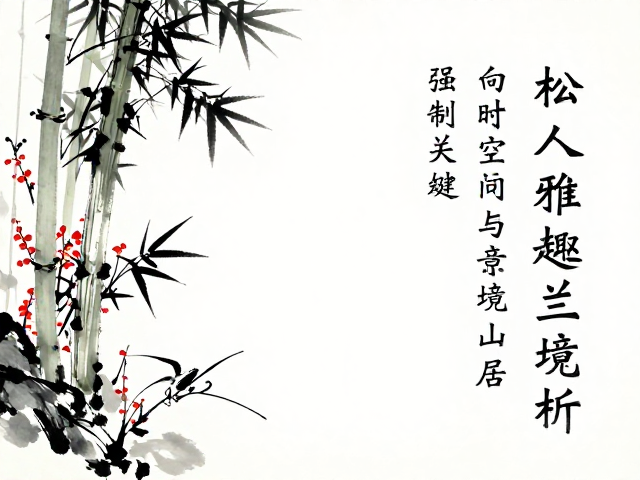 松人雅趣兰境析
向时空间与意境山居
强制关键